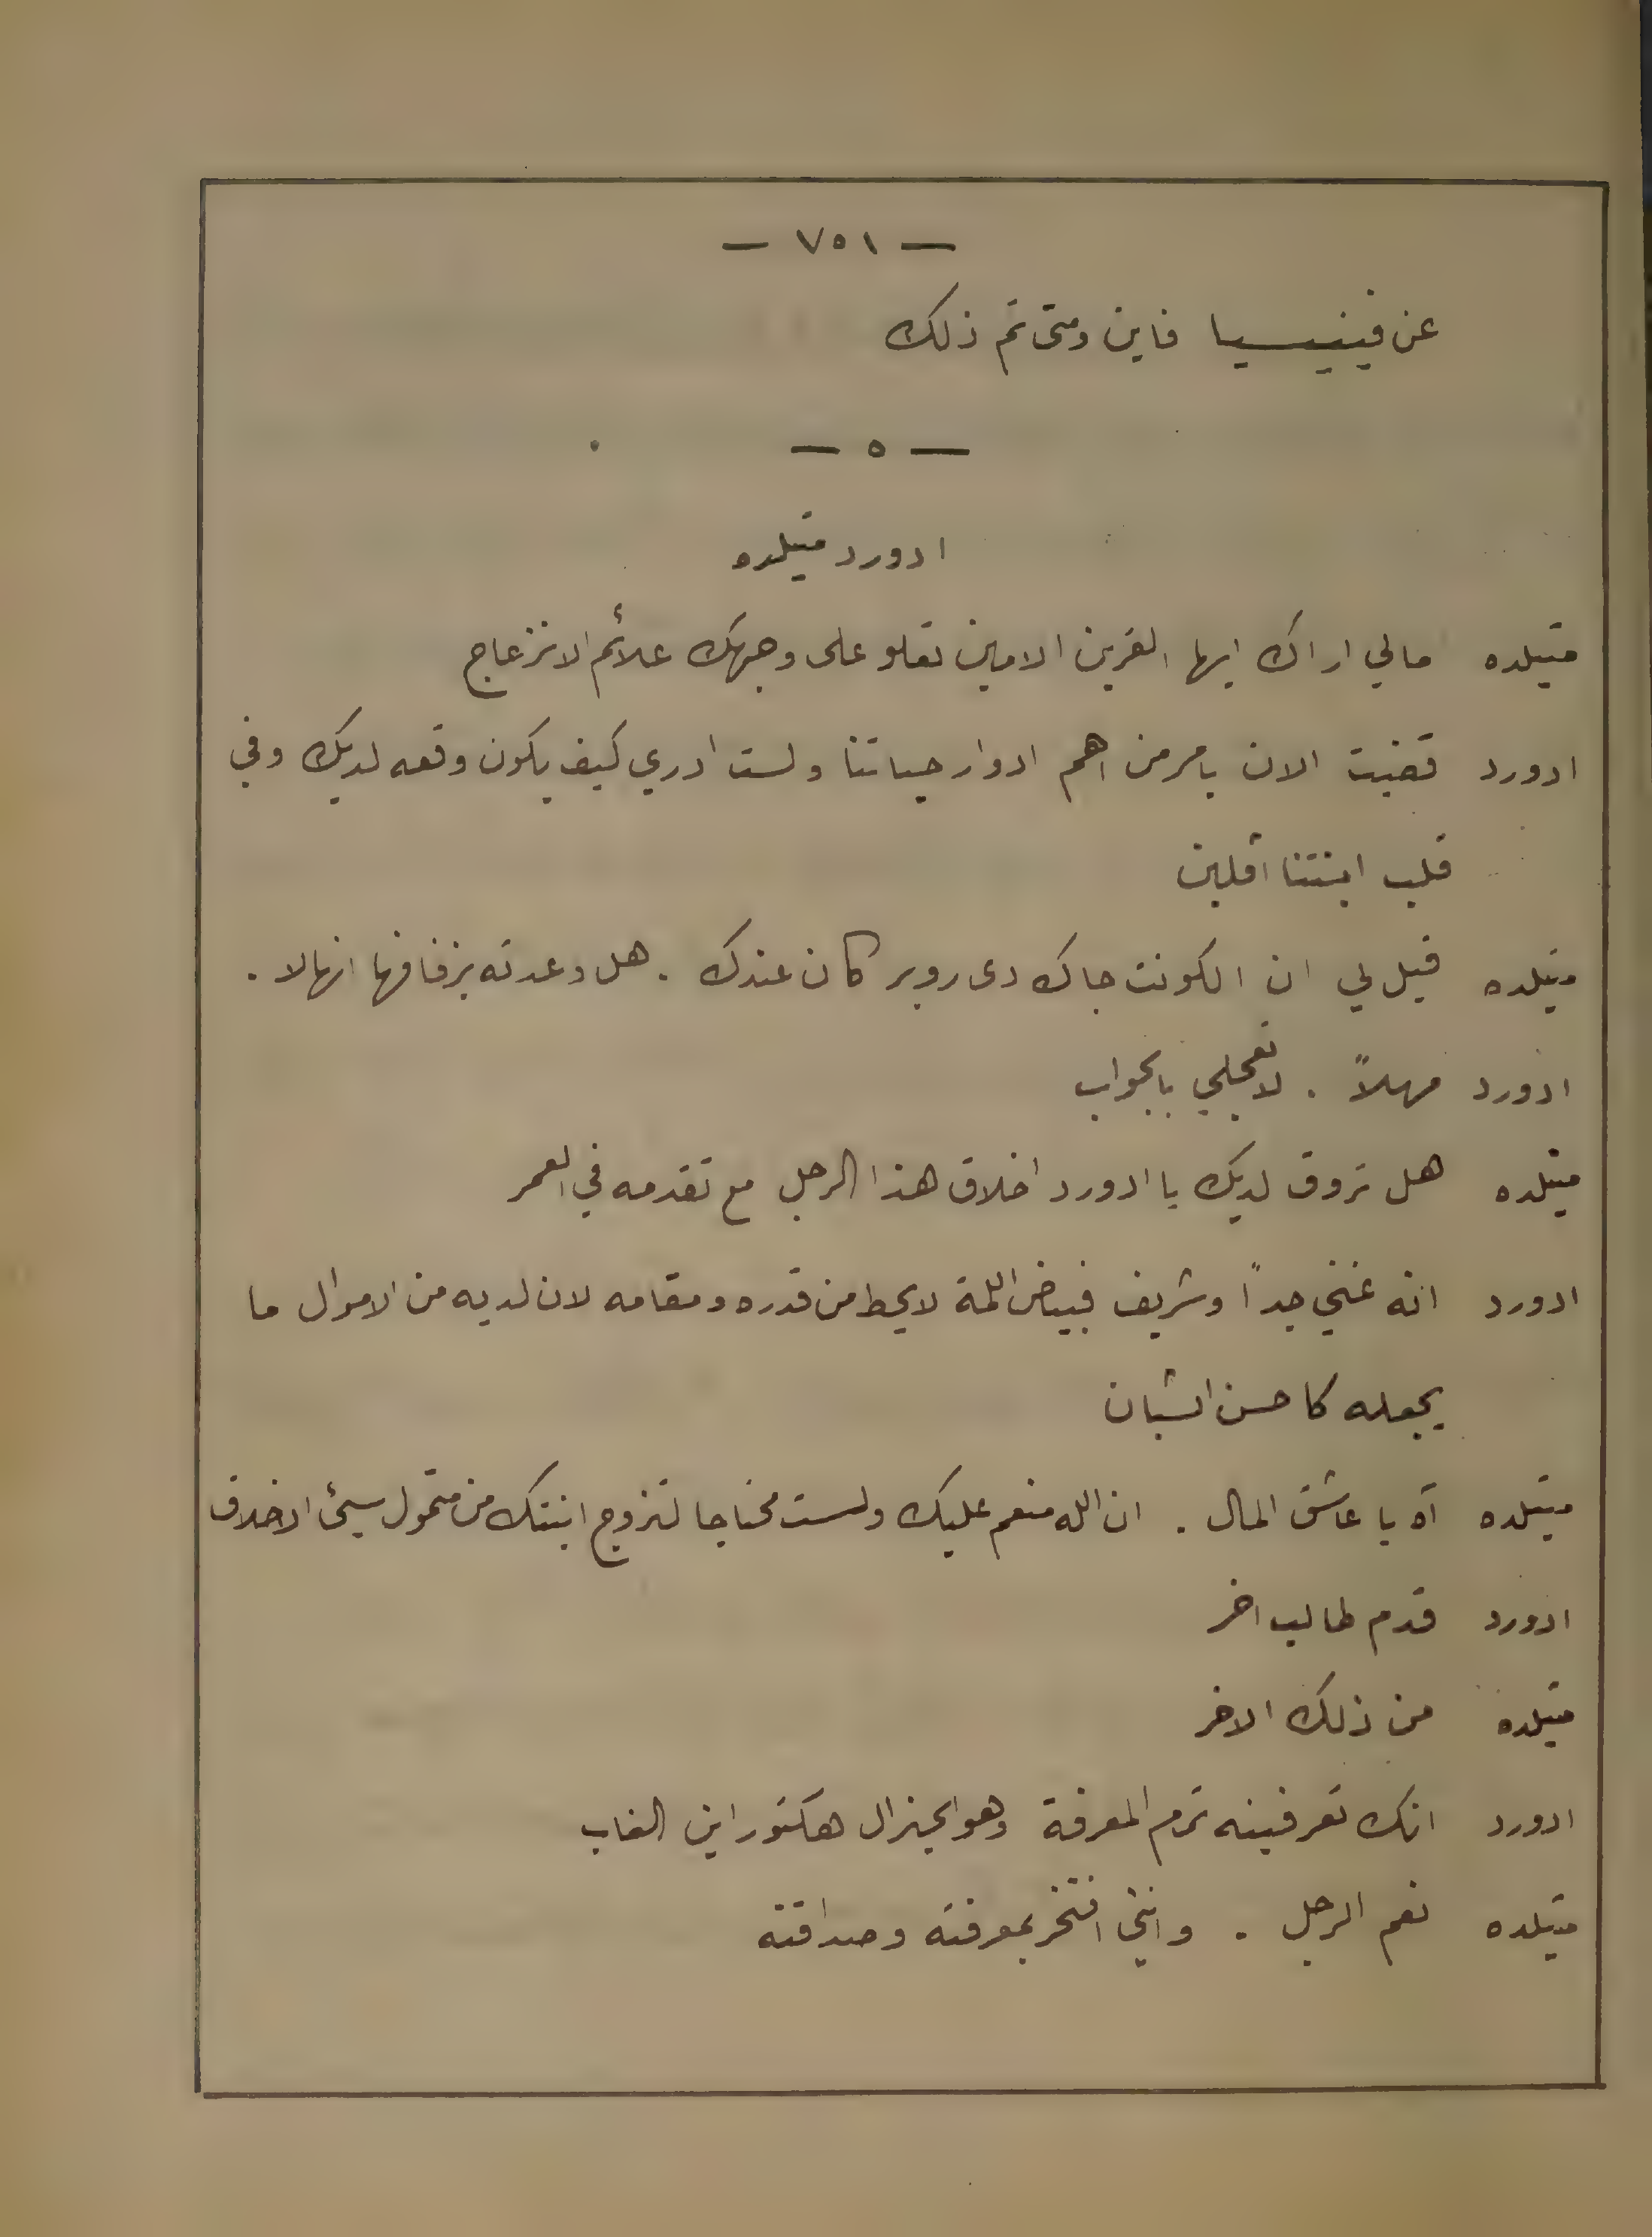 — ٧٥١ —
عن فينيسيا فاين ومتى تم ذلك
— ٥ —
ادورد متيلده
متيلده مالي اراك ايها القرين الامين تعلو على وجهك علائم الانزعاج
ادورد قضيت الان بامر من اهم ادوار حياتنا ولست ادري كيف يكون وقعه لديك وفي
قلب ابنتنا اڤلين
متيلده قيل لي ان الكونت جاك دى روبر كان عندك . هل وعدته بزفافها انها لا .
ادورد مهلاً . لا تعجلي بالجواب
متيلده هل تروق لديك يا ادورد اخلاق هذا الرجل مع تقدمه في العمر
ادورد انه غني جداً وشريف فبياض اللمة لا يحط من قدره ومقامه لان لديه من الاموال ما
يجعله كاحسن الشبان
متيلده آه يا عاشق المال . ان الله منعم عليك ولست محتاجا لتزوج ابنتك من متمول سيئ الاخلاق
ادورد قدم طالب اخر
متيلده من ذلك الاخر
ادورد انك تعرفينه تمام المعرفة وهو الجنرال هكتور اين الغاب
متيلده نعم الرجل . وانني افتخر بمعرفته وصداقته